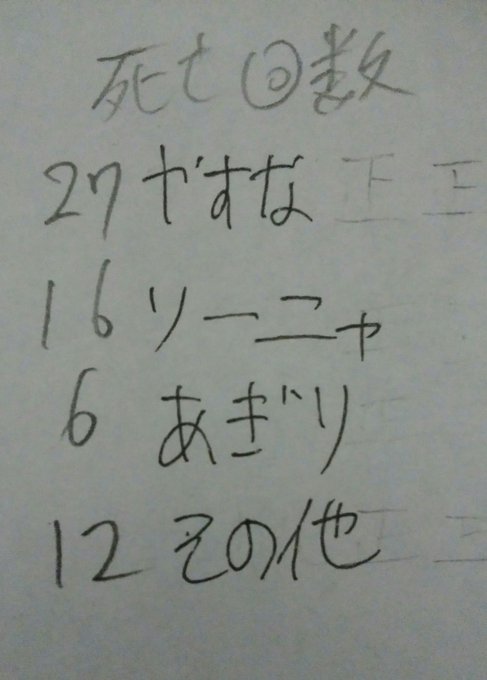 死亡回数
27 やすな 正 正
16 ソーニャ
6 あぎり
12 その他 正 正